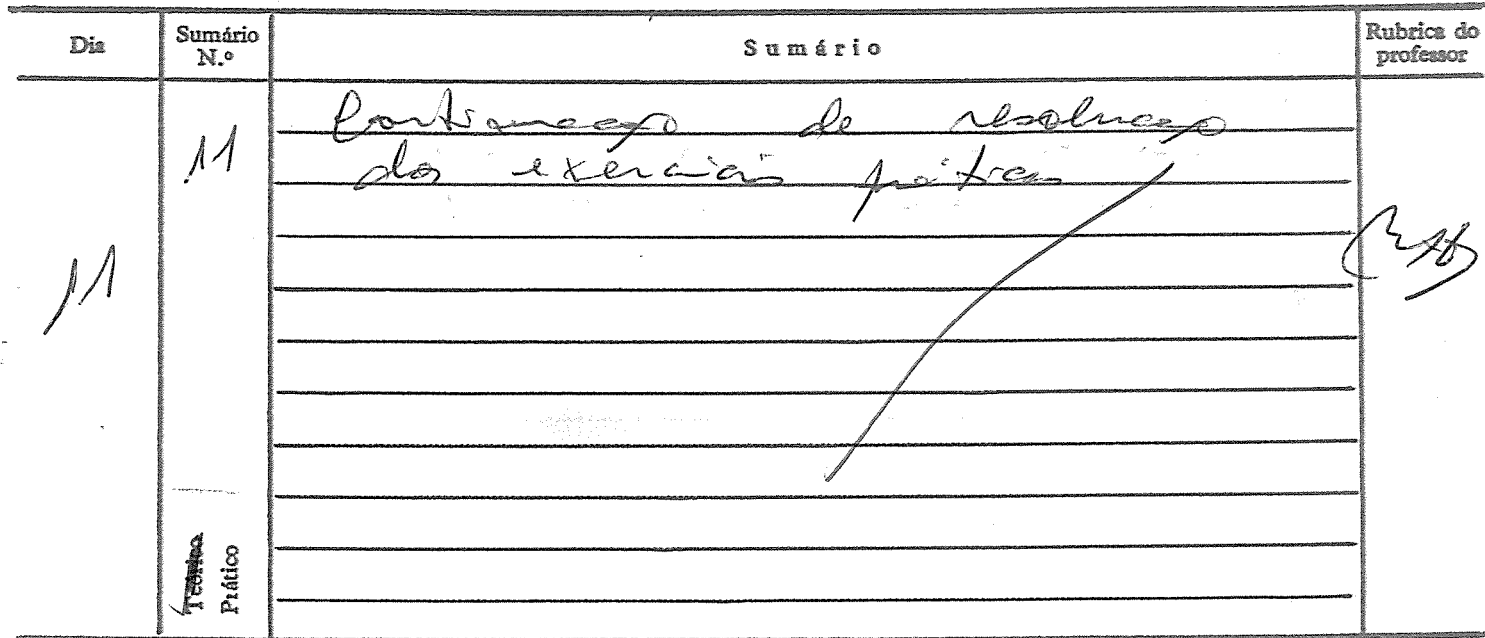 Dia
Sumário N.º
Sumário
Rubrica do professor
11
11
Continuação de resolução
dos exercícios práticos
Teórico
Prático